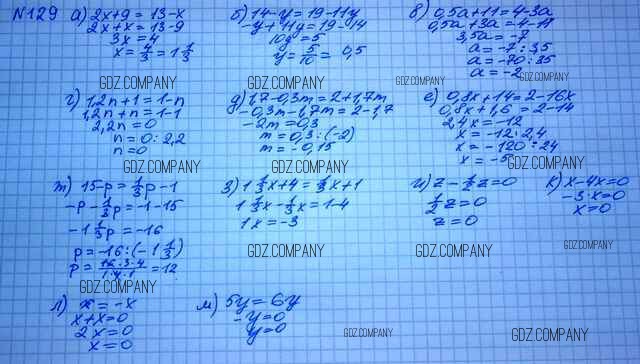 №129 а) 2x+9 = 13-x
2x+x = 13-9
3x = 4
x = 4/3 = 1 1/3
GDZ.COMPANY
б) 14-y = 19-11y
-y+11y = 19-14
10y = 5
y = 5/10 = 0,5
GDZ.COMPANY
в) 0,5a+11 = 4-3a
0,5a+3a = 4-11
3,5a = -7
a = -7 : 3,5
a = -70 : 35
a = -2
GDZ.COMPANY
г) 1,2n+1 = 1-n
1,2n+n = 1-1
2,2n = 0
n = 0 : 2,2
n = 0
GDZ.COMPANY
д) 1,7-0,3m = 2+1,7m
-0,3m-1,7m = 2-1,7
-2m = 0,3
m = 0,3 : (-2)
m = -0,15
GDZ.COMPANY
е) 0,8x+14 = 2-16x
0,8x+1,6 = 2-14
2,4x = -12
x = -12 : 2,4
x = -120 : 24
x = -5
GDZ.COMPANY
ж) 15-p = 1/3p-1
-p-1/3p = -1-15
-1 1/3p = -16
p = -16 : (-1 1/3)
= 12
GDZ.COMPANY
з) 1 1/3x+4 = 1/3x+1
1 1/3x-1/3x = 1-4
1x = -3
GDZ.COMPANY
и) z-1/2z=0
1/2z=0
z=0
GDZ.COMPANY
к) x-4x=0
-3x=0
x=0
GDZ.COMPANY
л) x = -x
x+x=0
2x=0
x=0
м) 5y = 6y
-y=0
y=0
GDZ.COMPANY
GDZ.COMPANY